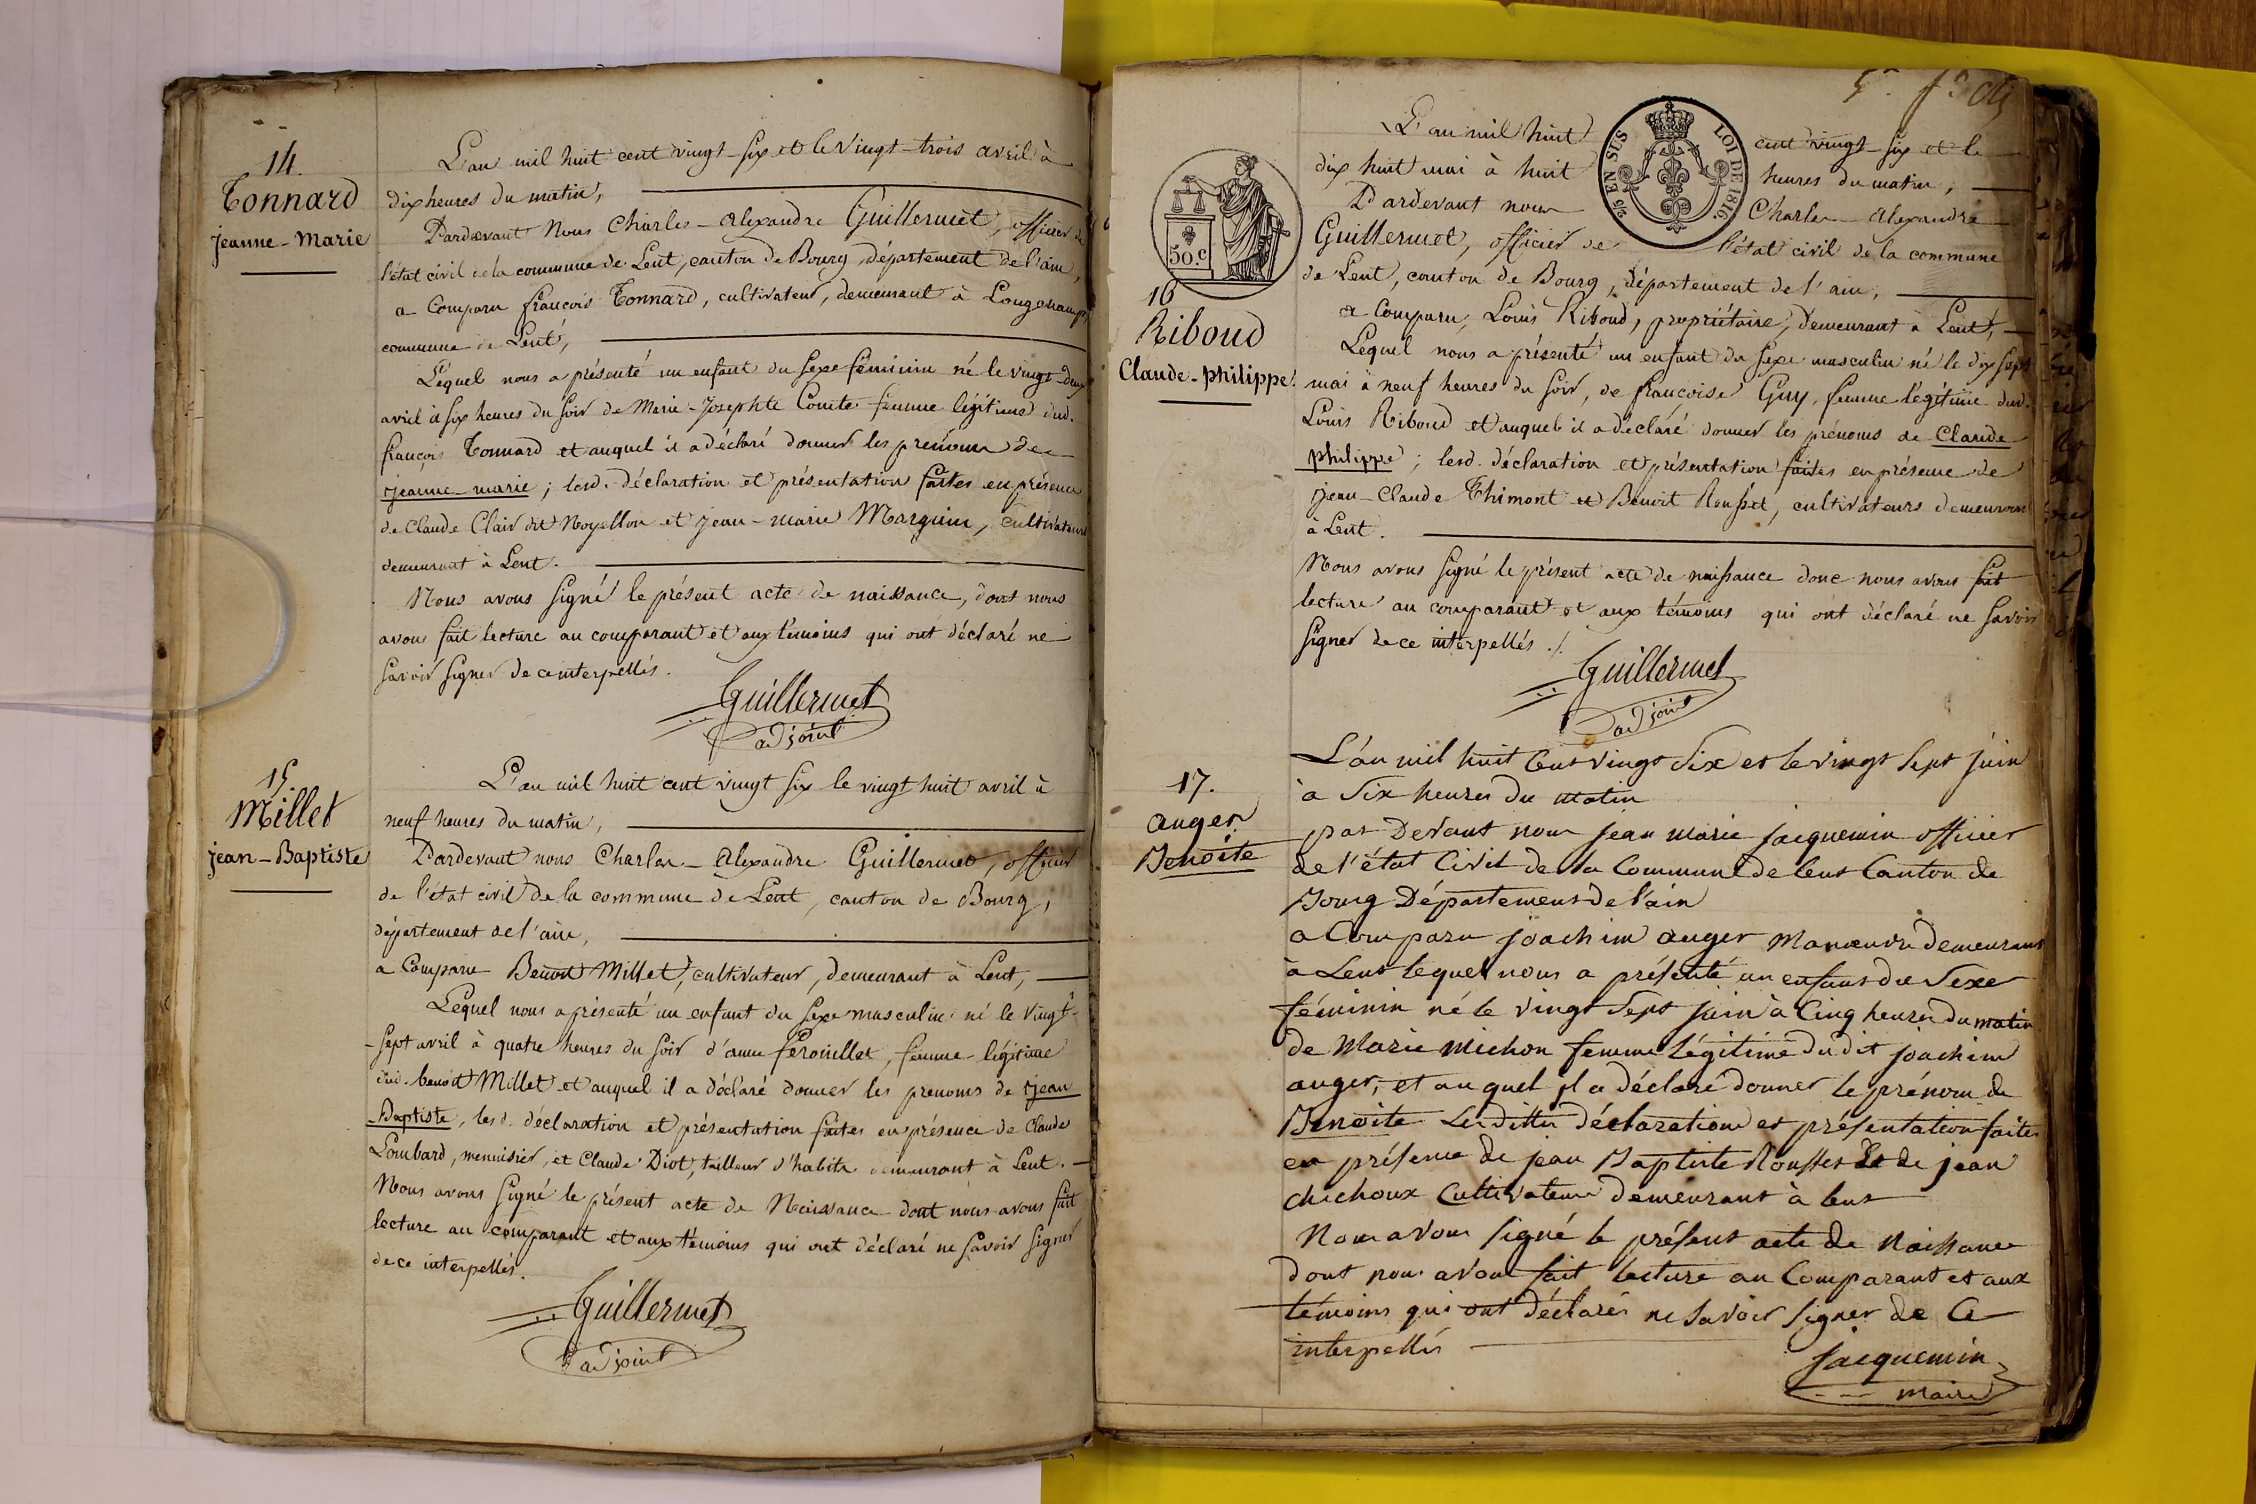 14.
Tonnard
jeanne-Marie
L'an mil huit cent vingt-six et le vingt-trois avril à
dix heures du matin,
Pardevant Nous Charles-Alexandre Guillermet, officier de
l'état civil de la commune de Lent, canton de Bourg, département de l'ain,
a Comparu françois Tonnard, cultivateur, demeurant à Longchamp,
commune de Lent,
Lequel nous a présenté un enfant du sexe féminin né le vingt-deux
avril à six heures du soir de Marie-Josephte Comte femme légitime dud.
françois Tonnard et auquel il a déclaré donner les prénoms de
jeanne-marie; lesd. déclaration et présentation faites en présence
de Claude Clair dit Noyellon et jean-marie Marguin, cultivateurs
demeurant à Lent.
Nous avons signé le présent acte de naissance, dont nous
avons fait lecture au comparant et aux témoins qui ont déclaré ne
savoir signer de ce interpellés.
Guillermet
adjoint
15.
Millet
jean-Baptiste
L'an mil huit cent vingt six le vingt huit avril à
neuf heures du matin,
Pardevant nous Charles-Alexandre Guillermet, officier
de l'état civil de la commune de Lent, canton de Bourg,
département de l'ain,
a Comparu Benoit Millet, cultivateur, demeurant à Lent,
Lequel nous a présenté un enfant du sexe masculin né le vingt-
-sept avril à quatre heures du soir d'anne ferouillet, femme légitime
dud. benoit Millet et auquel il a déclaré donner les prenoms de jean
-Baptiste, lesd. déclaration et présentation faites en présence de Claude
Lombard, menuisier, et Claude Diot, tailleur d'habits demeurant à Lent.
Nous avons signé le présent acte de Naissance dont nous avons fait
lecture au comparant et aux témoins qui ont déclaré ne savoir signer
de ce interpellés.
Guillermet
adjoint
5.e f.o
50.c
5/10 EN SUS
LOI DE 1816
16
Riboud
Claude-philippe.
L'an mil huit cent vingt-six et le
dix huit mai à huit heures du matin,
Pardevant nous Charles-Alexandre
Guillermet, officier de l'état civil de la commune
de Lent, canton de Bourg, département de l'ain,
a Comparu, Louis Riboud, propriétaire, demeurant à Lent,
Lequel nous a présenté un enfant du sexe masculin né le dix sept
mai à neuf heures du soir, de françoise Guy, femme légitime dud.
Louis Riboud et auquel il a déclaré donner les prénoms de Claude
philippe; lesd. déclaration et présentation faites en présence de
jean-Claude Thimont et Benoit Rousset, cultivateurs demeurant
à Lent.
Nous avons signé le présent acte de naissance donc nous avons fait
lecture au comparant et aux témoins qui ont déclaré ne savoir
signer de ce interpellés ./.
Guillermet
adjoint
17.
auger
Benoite
L'an mil huit Cent vingt Six et le vingt Sept juin
à Six heures du matin
par Devant nous jean marie jacquemin officier
de l'état Civil de la Commune de lent Canton de
Bourg Département de l'ain
a Comparu joachim auger Manœuvre demeurant
à Lent lequel nous a présenté un enfant du Sexe
féminin né le vingt Sept juin à Cinq heures du matin
de Marie Michon femme légitime du dit joachim
auger, et au quel il a déclaré donner le prénom de
Benoite Lesdittes déclaration et présentation faites
en présence de jean Baptiste Rousset Et de jean
chichoux Cultivateurs demeurant à lent
Nous avons signé le présent acte de Naissance
dont nous avons fait lecture au Comparant et aux
témoins qui ont déclarés ne savoir signer de Ce
interpellés
jacquemin
maire